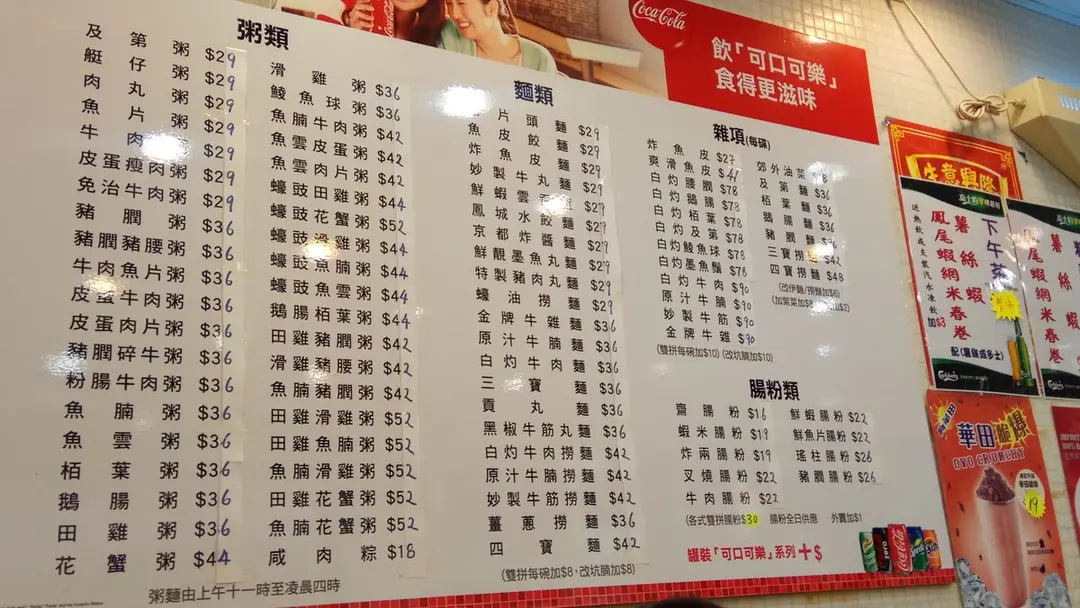 粥類
及第粥 $29
艇仔粥 $29
肉丸粥 $29
魚片粥 $29
牛肉粥 $29
皮蛋瘦肉粥 $29
免治牛肉粥 $29
豬膶粥 $36
豬膶豬腰粥 $36
牛肉魚片粥 $36
皮蛋牛肉粥 $36
皮蛋肉片粥 $36
豬膶碎牛粥 $36
粉腸牛肉粥 $36
魚腩粥 $36
魚雲粥 $36
栢葉粥 $36
鵝腸粥 $36
田雞粥 $36
花蟹粥 $44
滑雞粥 $36
鯪魚球粥 $36
魚腩牛肉粥 $42
魚雲皮蛋粥 $42
魚雲肉片粥 $42
蠔豉田雞粥 $44
蠔豉花蟹粥 $52
蠔豉滑雞粥 $44
蠔豉魚腩粥 $44
蠔豉魚雲粥 $44
鵝腸栢葉粥 $44
田雞豬膶粥 $42
滑雞豬腰粥 $42
魚腩豬膶粥 $42
田雞滑雞粥 $52
田雞魚腩粥 $52
魚腩滑雞粥 $52
田雞花蟹粥 $52
魚腩花蟹粥 $52
咸肉粽 $18
粥麵由上午十一時至凌晨四時
麵類
片頭麵 $29
魚皮餃麵 $29
炸魚皮麵 $29
妙製牛丸麵 $29
鮮蝦雲吞麵 $29
鳳城水餃麵 $29
京都炸醬麵 $29
鮮靚墨魚丸麵 $29
特製豬肉丸麵 $29
蠔油撈麵 $29
金牌牛雜麵 $36
原汁牛腩麵 $36
白灼牛肉麵 $36
三寶麵 $36
貢丸麵 $36
黑椒牛筋丸麵 $36
白灼牛肉撈麵 $42
原汁牛腩撈麵 $42
妙製牛筋撈麵 $42
薑蔥撈麵 $36
四寶麵 $42
(雙拼每碗加$8，改坑腩加$8)
Coca-Cola
飲「可口可樂」
食得更滋味
雜項(每碟)
炸魚皮 $27
爽滑魚皮
白灼腰膶 $78
白灼鵝腸 $78
白灼栢葉 $78
白灼及第 $78
白灼鯪魚球 $78
白灼墨魚鬚 $78
白灼牛肉 $90
原汁牛腩 $90
妙製牛筋 $90
金牌牛雜 $90
(雙拼每碗加$10) (改坑腩加$10)
郊外油菜
及第麵 $36
栢葉麵 $36
鵝腸麵 $36
豬膶麵
三寶撈麵 $42
四寶撈麵 $48
(改伊麵/撈麵加$6)
腸粉類
齋腸粉 $16
蝦米腸粉 $19
炸兩腸粉 $19
叉燒腸粉 $22
牛肉腸粉 $22
鮮蝦腸粉 $22
鮮魚片腸粉 $22
瑤柱腸粉 $26
豬膶腸粉 $26
(各式雙拼腸粉$30 腸粉全日供應 外賣加$1
罐裝「可口可樂」系列 +$
生意興隆
下午茶
薯絲蝦米春卷
鳳尾蝦網
Carlsberg
華田脆爆
OVO CRUNCHY
$19